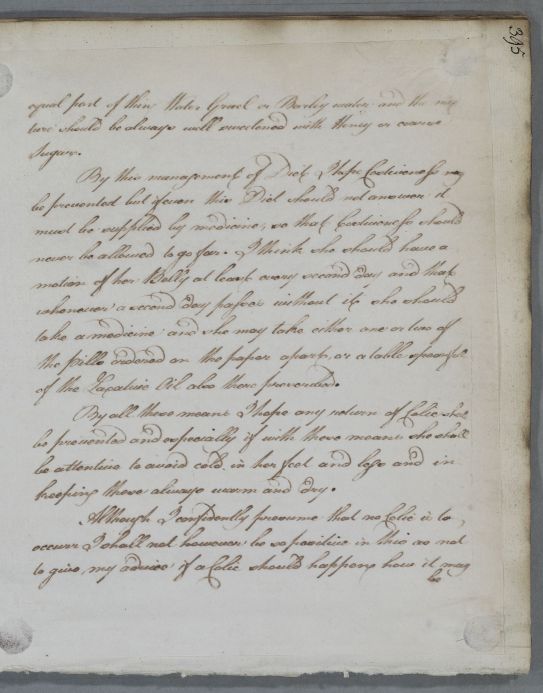 395
equal part of thin Water Gruel or Barley water and the mix
ture should be always well sweetened with Honey or coarse
Sugar.
By this management of Diet I hope Costiveness may
be prevented but if even this Diet should not answer it
must be supplied by medicine, so that Costiveness should
never be allowed to go far. I think she should have a
motion of her Belly at least every second day and that
whenever a second day passes without it she should
take a medicine and she may take either one or two of
the pills ordered on the paper apart, or a table spoonful
of the Laxative Oil also there prescribed.
By all these means I hope any return of Colic shall
be prevented and especially if with these means she shall
be attentive to avoid cold in her feet and legs and in
keeping these always warm and dry.
Although I confidently presume that no Colic is to
occurr I shall not however be so positive in this as not
to give my advice if a Colic should happen how it may
be